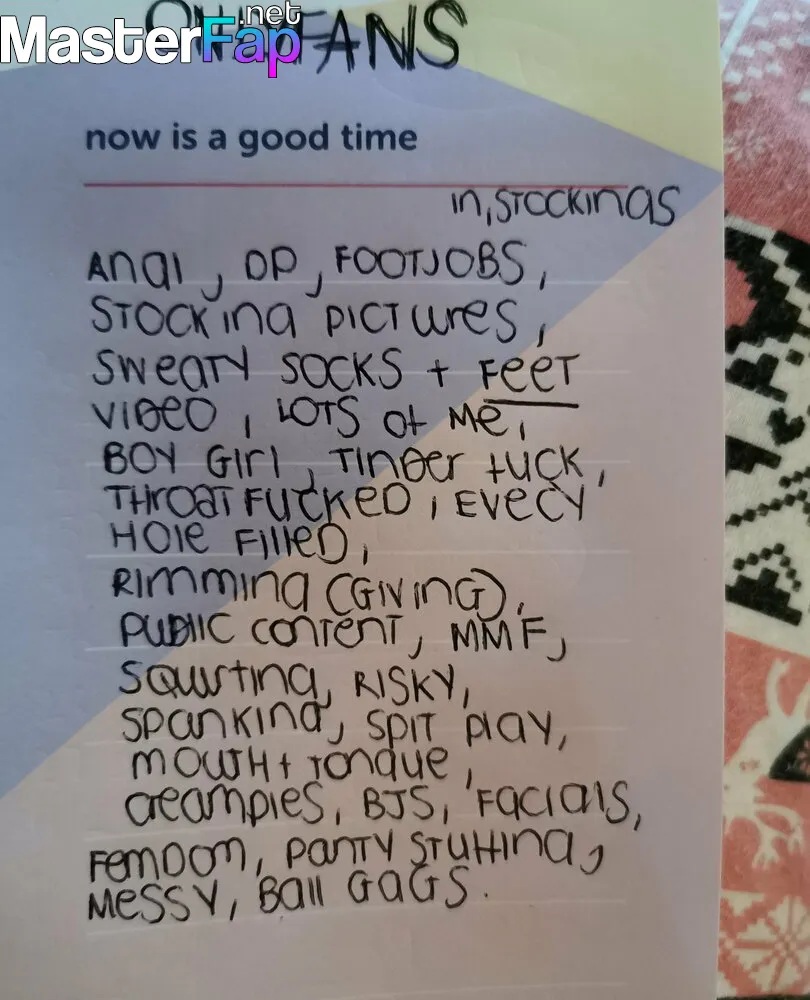 ONLYFANS
MasterFap.net
now is a good time
in, STOCKINGS
Anal, DP, FOOTJOBS,
STOCKING PICTURES,
SWEATY SOCKS + FEET
VIDEO, LOTS OF ME,
BOY GIRL, TINDER FUCK,
THROATFUCKED, EVERY
HOLE FILLED,
RIMMING (GIVING),
PUBLIC CONTENT, MMF,
SQUIRTING, RISKY,
SPANKING, SPIT PLAY,
MOUTH + TONGUE,
CREAMPIES, BJS, FACIALS,
FEMDOM, PANTY STUFFING,
MESSY, BALL GAGS.